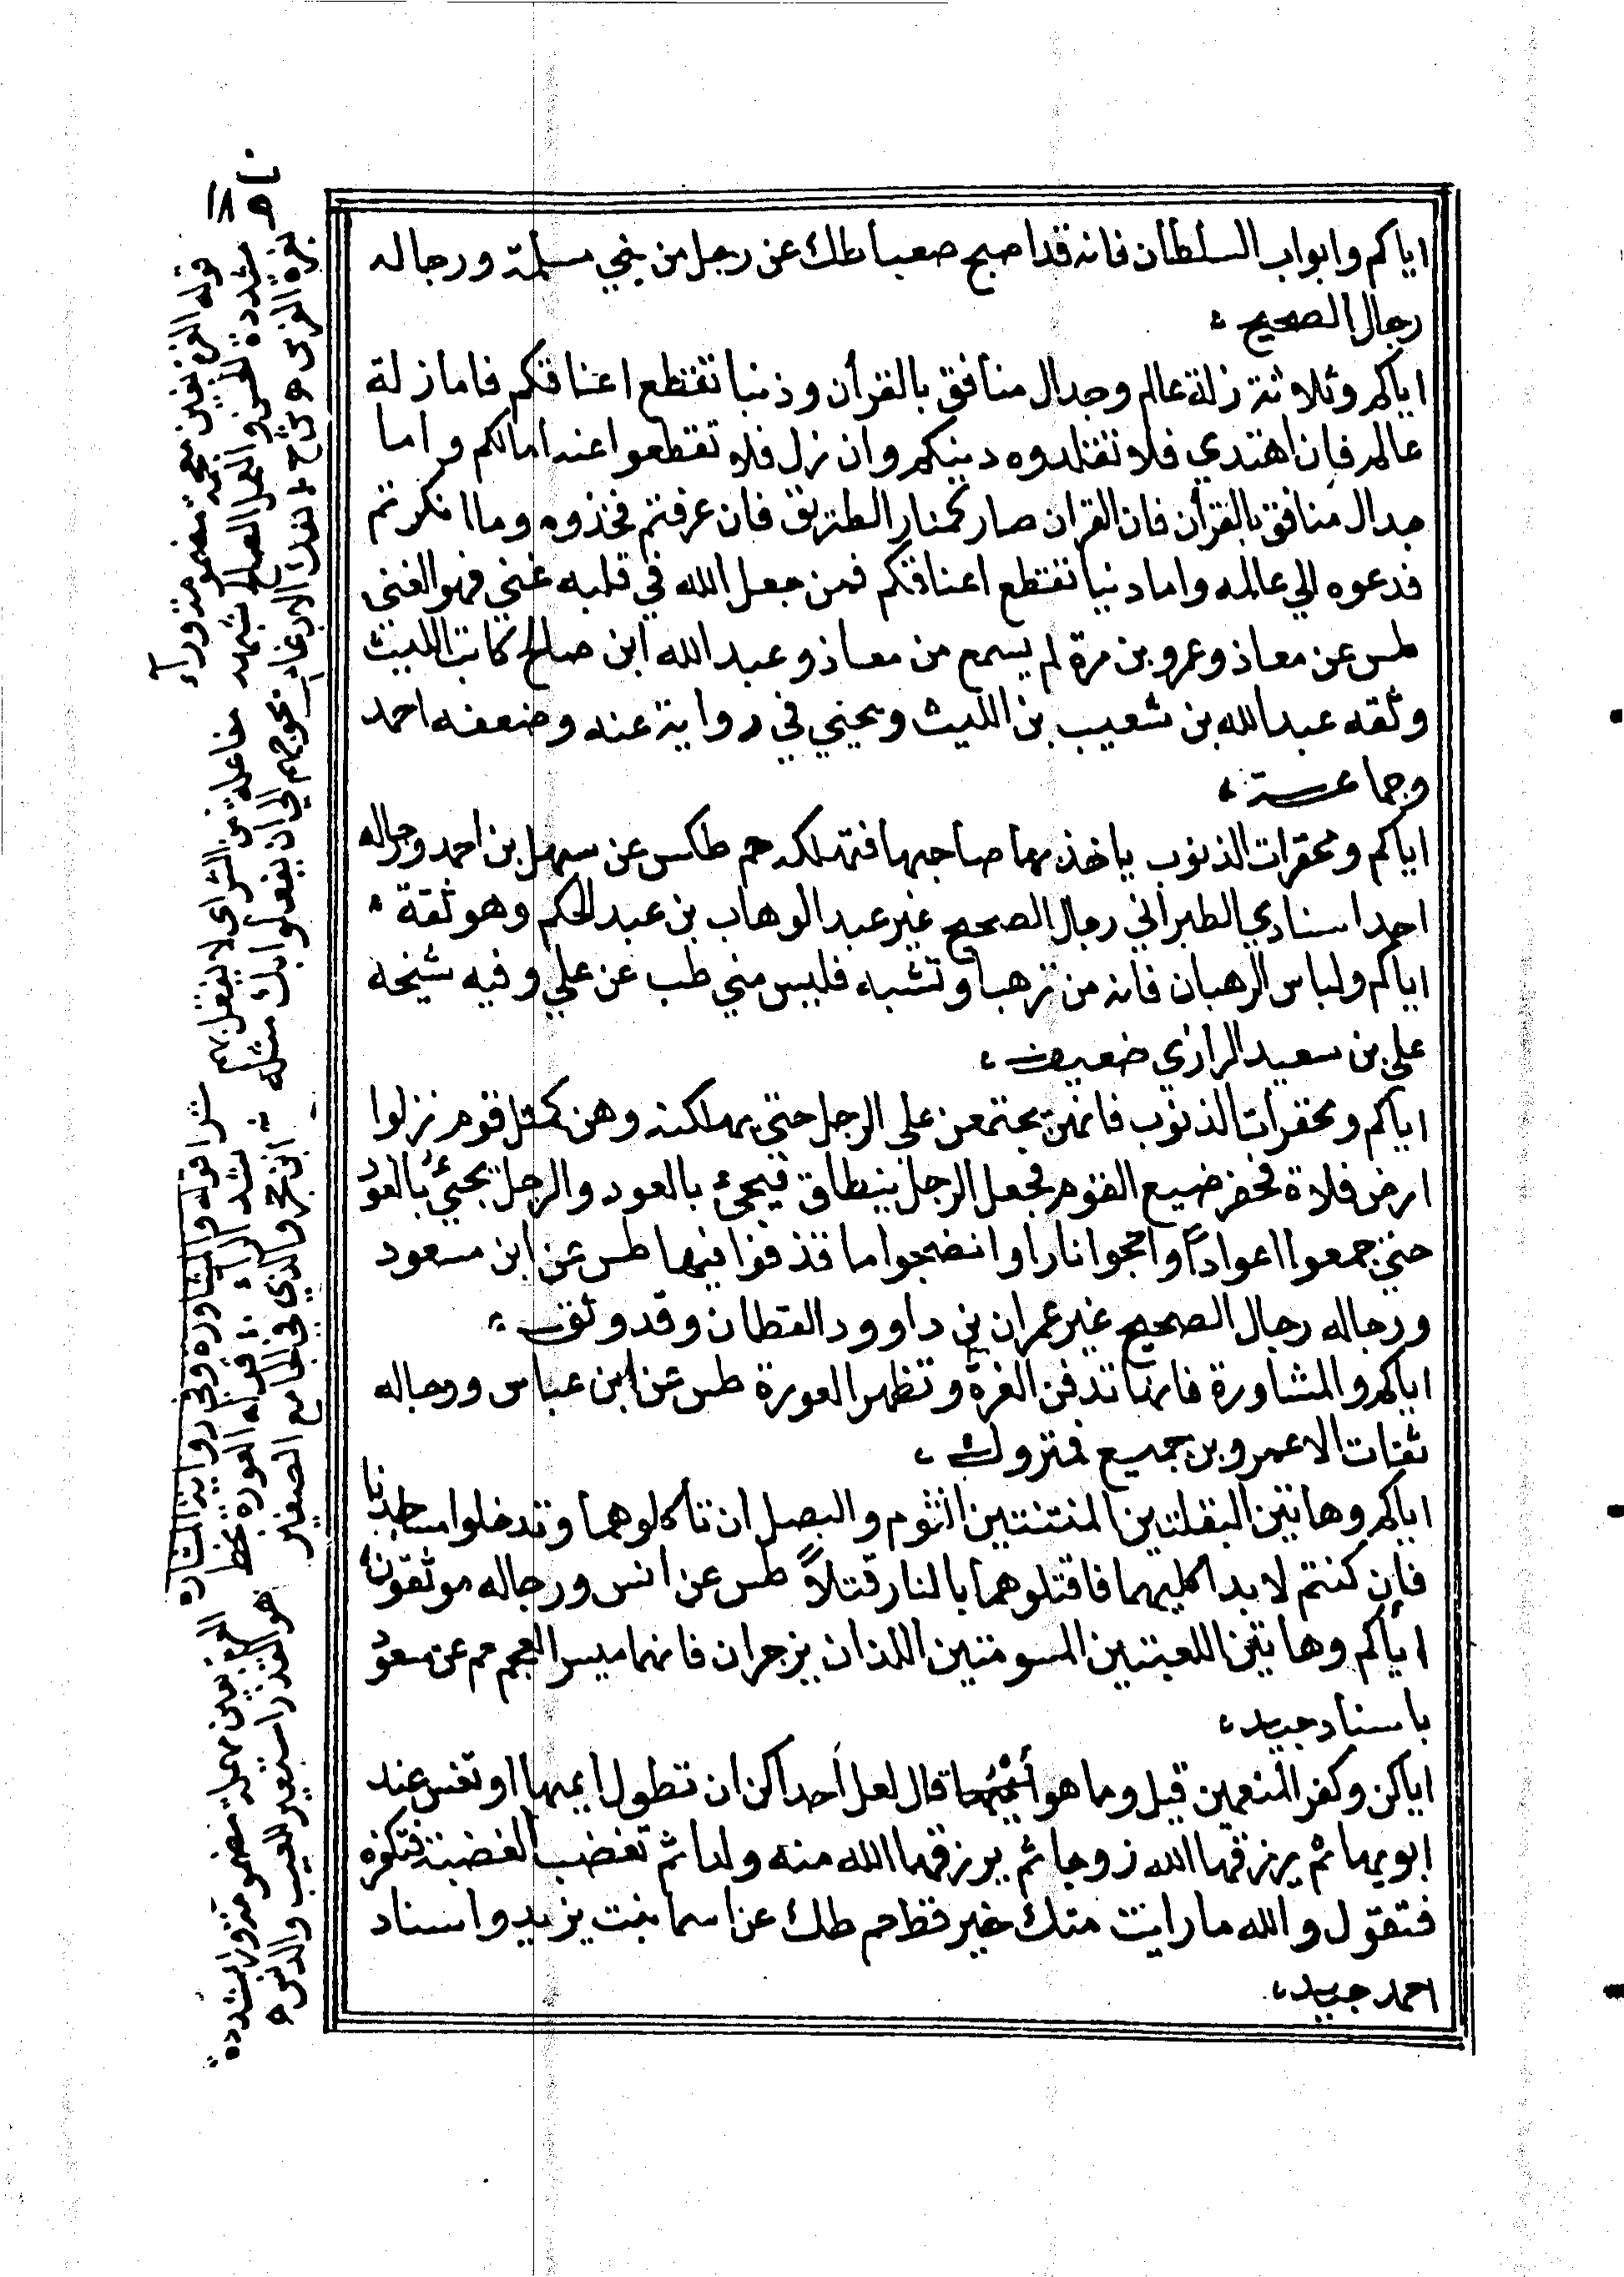 اياكم وابواب السلطان فانه قد اصبح صعبا طك عن رجل من بني سلمة ورجاله
رجال الصحيح
اياكم وثلاثة زلة عالم وجدال منافق بالقرآن ودنيا تقطع اعناقكم فاما زلة
عالم فان اهتدي فلا تقلدوه دينكم وان زل فلا تقطعوا عنه امالكم واما
جدال منافق بالقرآن فان القران صار كمنار الطريق فان عرفتم فخذوه وما انكرتم
فدعوه الي عالمه واما دنيا تقطع اعناقكم فمن جعل الله في قلبه غني فهو الغني
طس عن معاذ وعمرو بن مرة لم يسمع من معاذ وعبد الله ابن صالح كاتب الليث
وثقه عبد الله بن شعيب بن الليث ويحيي في رواية عنه وضعفه احمد
وجماعة
اياكم ومحقرات الذنوب ياخذ بها صاحبها فتهلكه حم طكس عن سهل بن احمد ورجاله
احد اسنادي الطبراني رجال الصحيح غير عبد الوهاب بن عبد الحكم وهو ثقة
اياكم ولباس الرهبان فانه من ترهب او تشبه فليس مني طب عن علي وفيه شيخه
علي بن سعيد الرازي ضعيف
اياكم ومحقرات الذنوب فانهن يجتمعن علي الرجل حتي يهلكنه وهن كمثل قوم نزلوا
ارض فلاة فحضر ضيع القوم فجعل الرجل ينطلق فيجئ بالعود والرجل يجئ بالعود
حتي جمعوا اعوادًا واججوا نارا وانضجوا ما قذفوا فيها طس عن ابن مسعود
ورجاله رجال الصحيح غير عمران بن داوود القطان وقد وثق
اياكم والمشاورة فانها تدفن الغرة وتظهر العورة طس عن ابن عباس ورجاله
ثقات الا عمرو بن جميع فمتروك
اياكم وهاتين البقلتين المنتنتين الثوم والبصل ان تأكلوهما وتدخلوا مساجدنا
فان كنتم لا بد اكليهما فاقتلوهما بالنار قتلاً طس عن انس ورجاله موثقون
اياكم وهاتين اللعبتين المسومتين اللذان يزجران فانهما ميسر العجم حم عن مسعود
باسناد جيد
اياكن وكفر المنعمين قيل وما هو قال لعل أحداكن ان تطول ايمها او تعنس عند
ابويها ثم يرزقها الله زوجا ثم يرزقها الله منه ولدا ثم تغضب الغضبة فتكفره
فتقول والله ما رايت منك خير قط حم طك عن اسما بنت يزيد واسناد
احمد جيد
قوله الغرة بغين معجمة مضمومة وراء
مشددة الحسن والعمل الصالح شبهه
بغرة الفرس
مفاعلة من الشر اى لا تفعل بهم
شرا قوله والمشاورة وفي رواية المشارة
بشد الراء قوله العورة بخط
ابن حجر والذي في الجامع الصغير
العرة بعين مهملة مضمومة وراء مشددة
هو القذر استعير للعيب والدنس